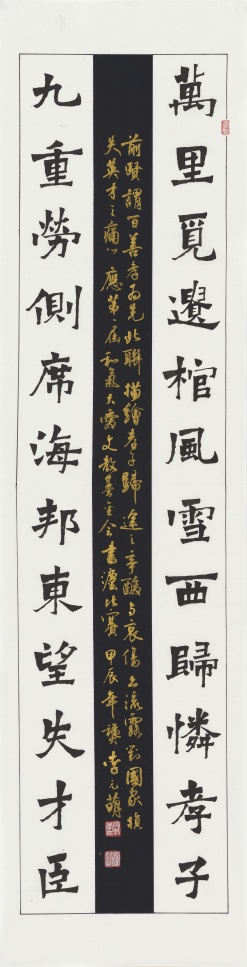 萬里覓邊棺風雪西歸憐孝子
前賢謂百善孝為先此聯描繪孝子歸途之辛酸與哀傷亦流露對國家損
失英才之痛心應第屆和氣大愛文教基金會書灋比賽甲辰年李元萌
九重勞側席海邦東望失才臣